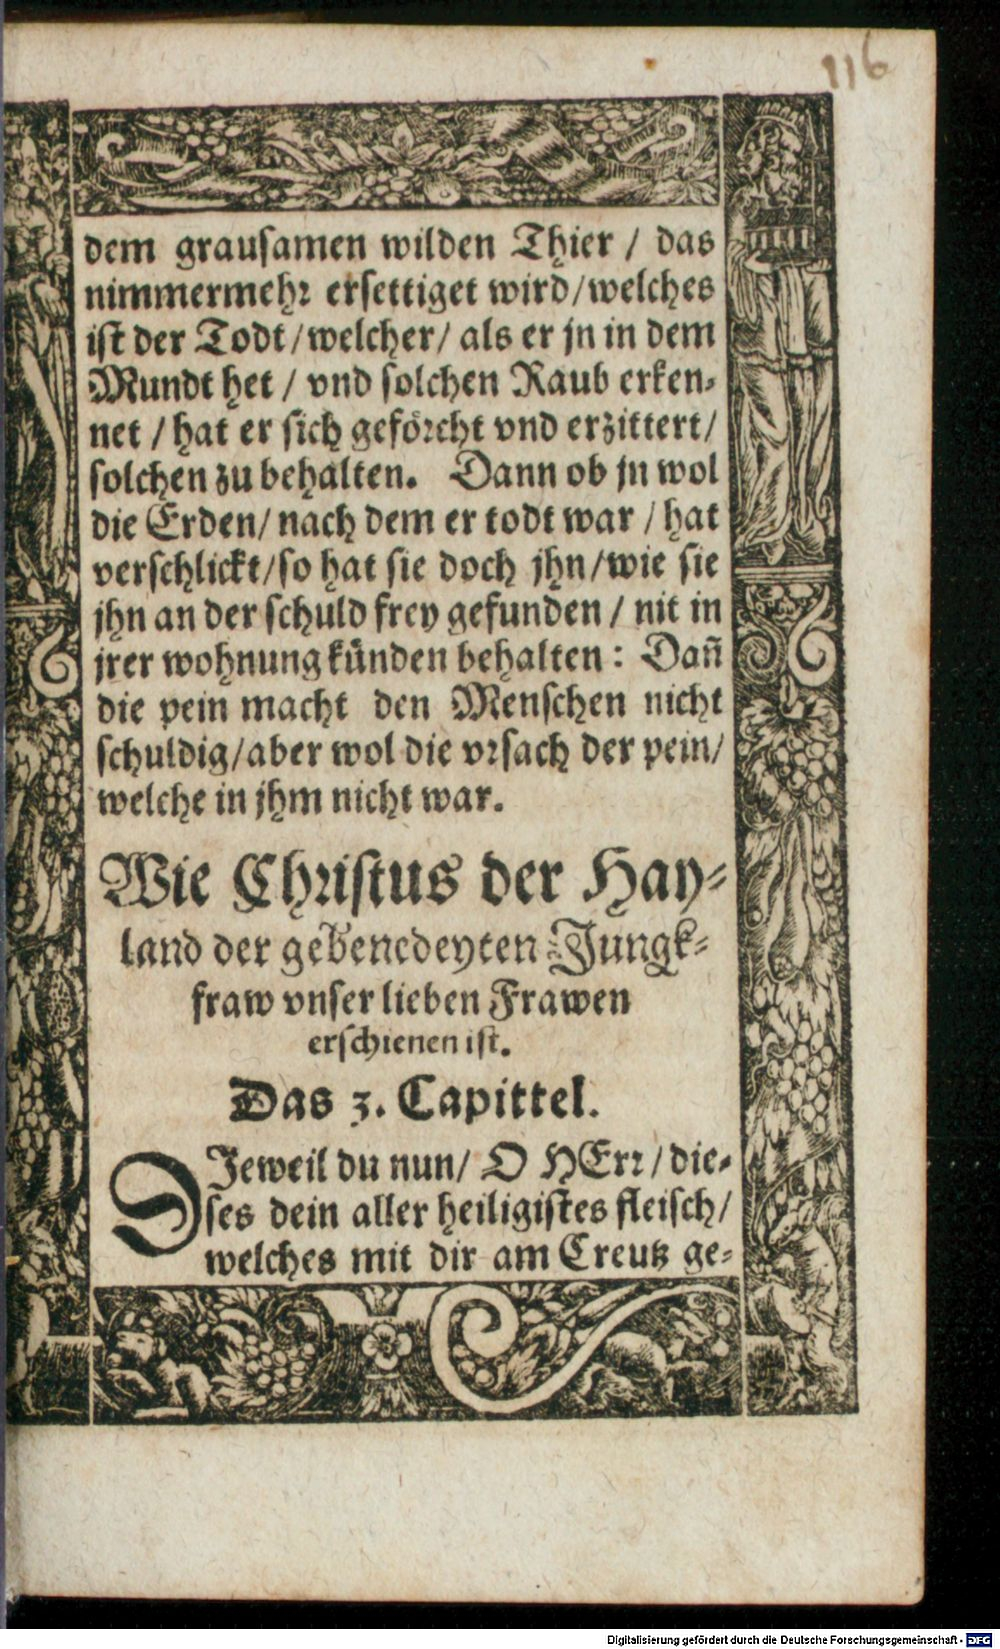 116
dem grausamen wilden Thier / das
nimmermehr ersettiget wird/welches
ist der Todt/welcher/ als er jn in dem
Mundt het / vnd solchen Raub erken-
net / hat er sich geförcht vnd erzittert/
solchen zu behalten. Dann ob jn wol
die Erden/ nach dem er todt war / hat
verschlickt/so hat sie doch jhn/wie sie
jhn an der schuld frey gefunden / nit in
jrer wohnung künden behalten: Dañ
die pein macht den Menschen nicht
schuldig/aber wol die vrsach der pein/
welche in jhm nicht war.
Wie Christus der Hay-
land der gebenedeyten Jungk-
fraw vnser lieben Frawen
erschienen ist.
Das 3. Capittel.
DJeweil du nun/ O HErr/ die-
ses dein aller heiligistes fleisch/
welches mit dir am Creutz ge-
Digitalisierung gefördert durch die Deutsche Forschungsgemeinschaft - DFG